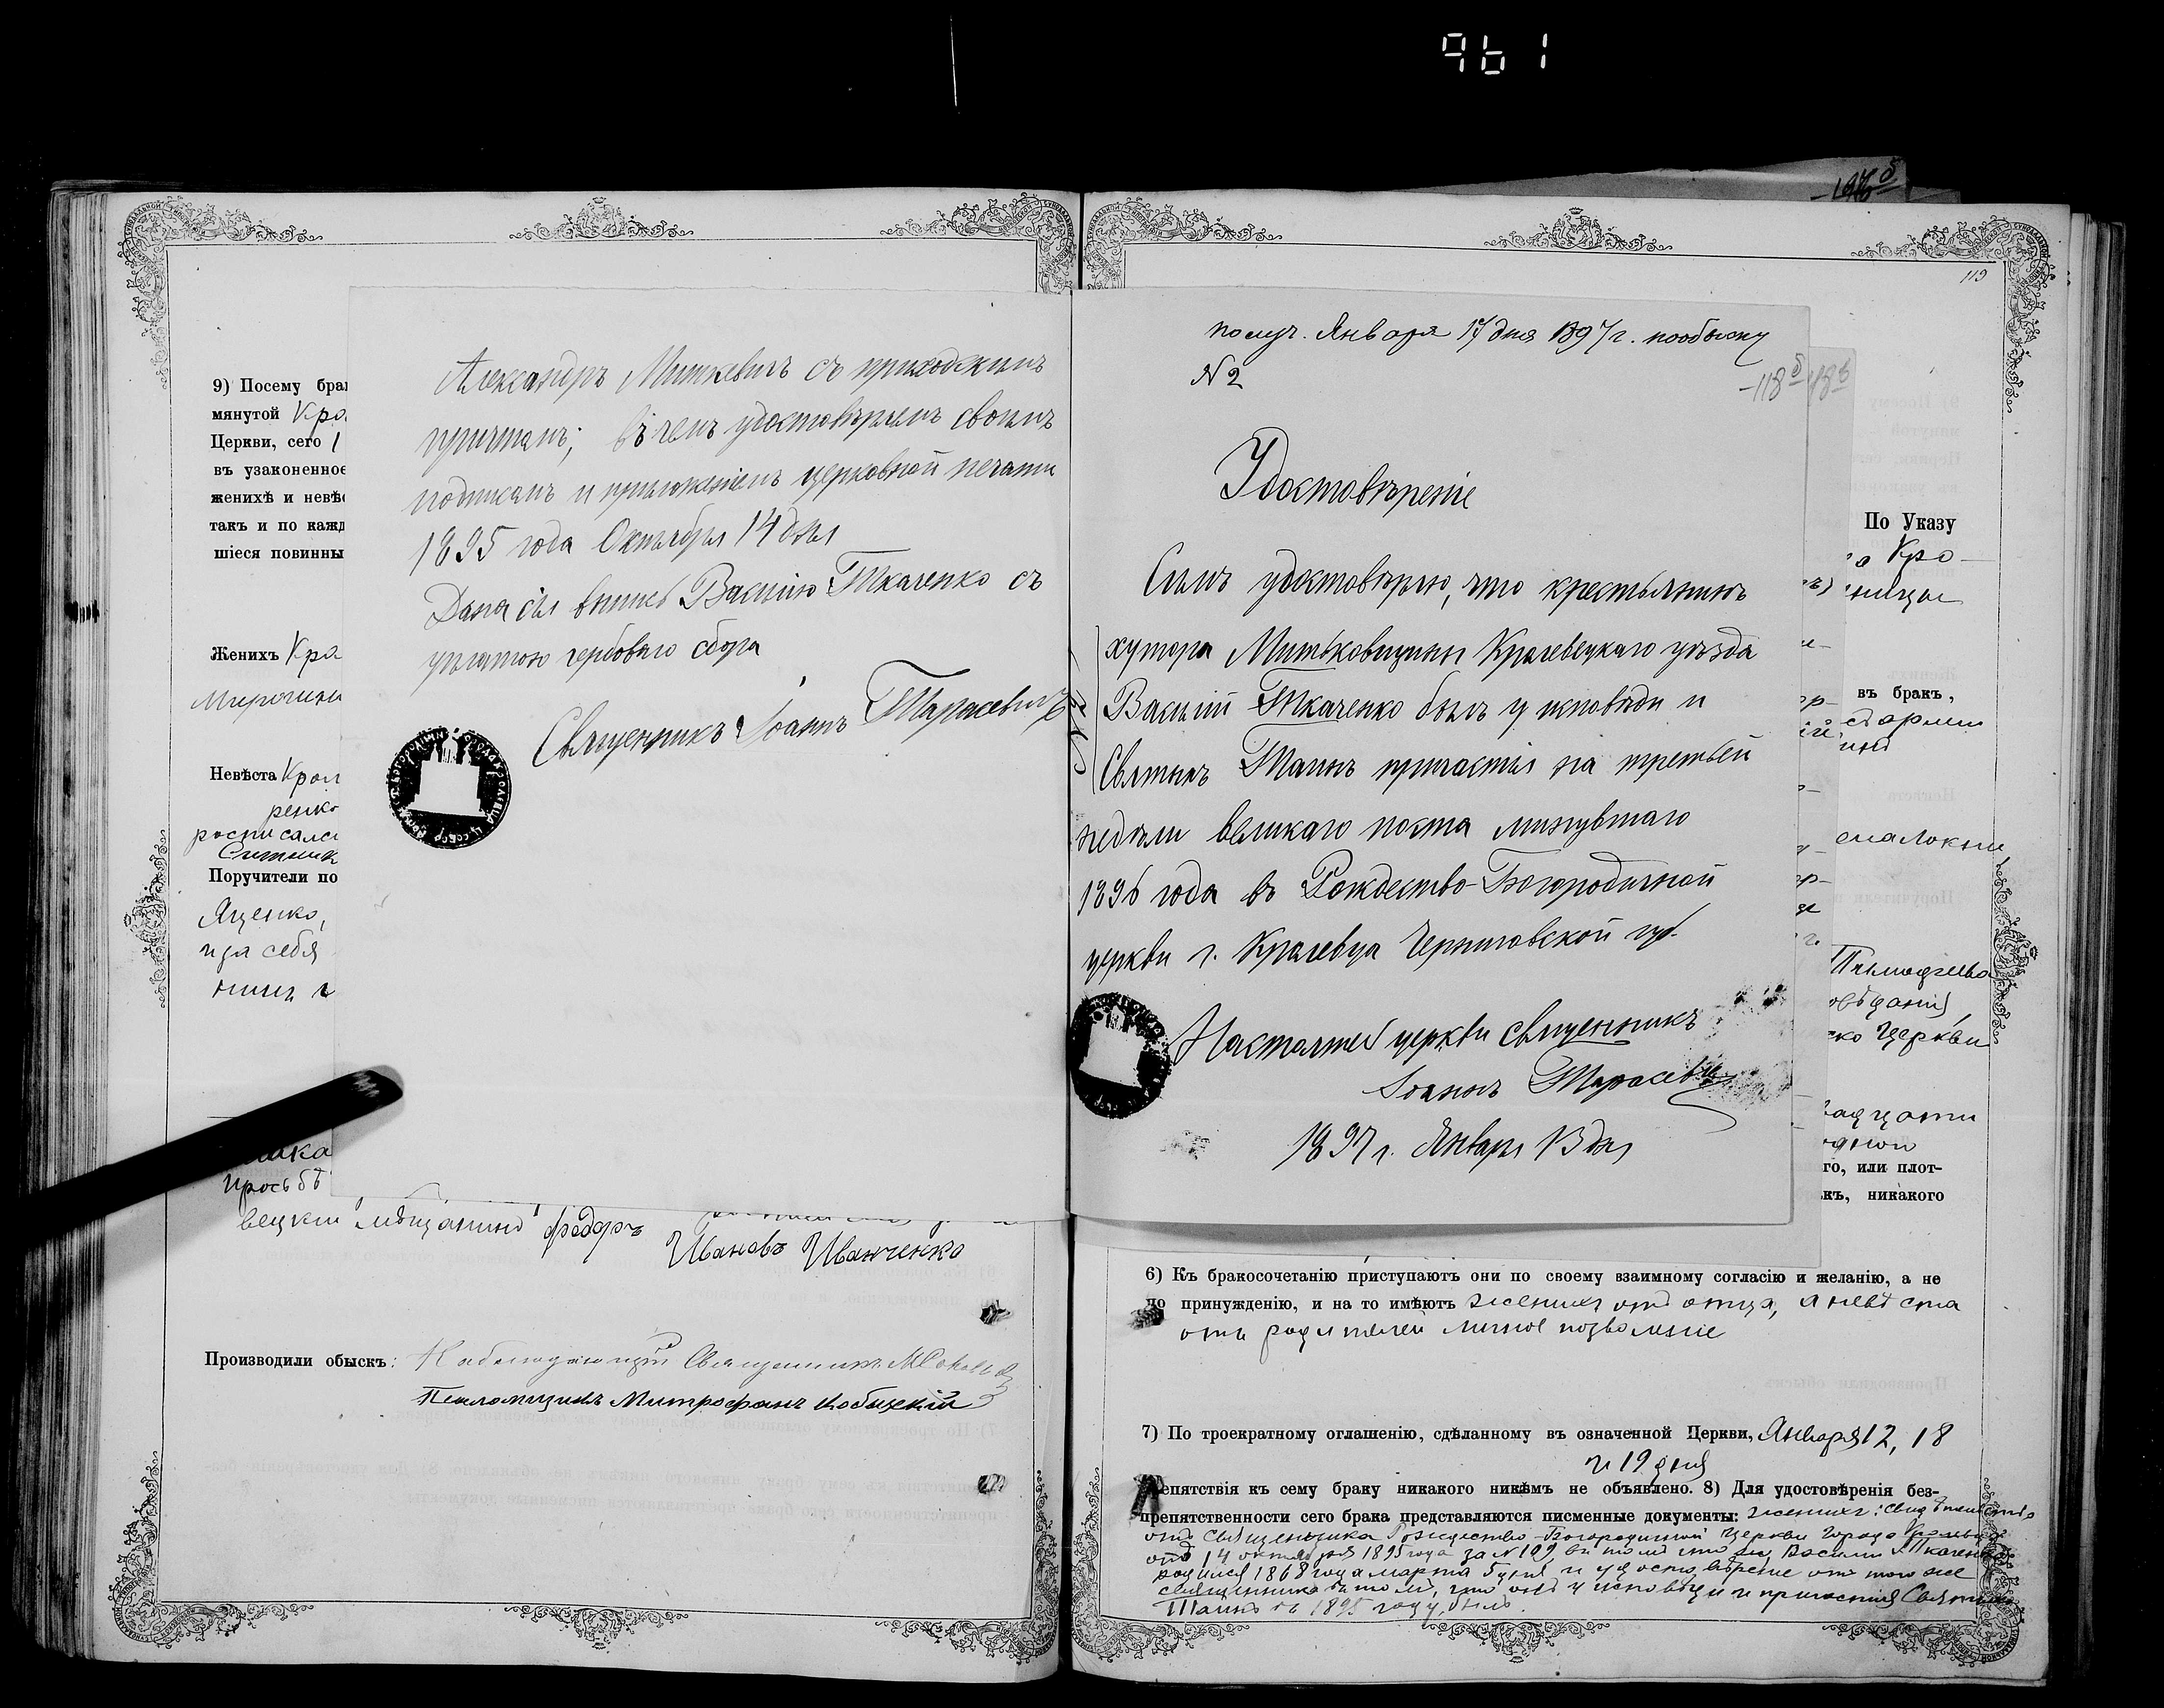 961
9) Посему бра
мянутой Кро
Церкви, сего 1
въ узаконенное
женихѣ и невѣс
такъ и по кажд
шіеся повинны
Женихъ Кра
Невѣста Крол
ренко
росписалс
Ситник
Поручители по
Яценко,
и за себя
Александръ Миткевичъ съ приходскимъ
причтомъ; въ чемъ удостовѣряемъ своимъ
подписомъ и приложеніемъ церковной печати
1895 года Октября 14 дня
Дана сія выпись Василію Ткаченко съ
уплатою гербоваго сбора
Священникъ Іоаннъ Тарасевичъ
просьбѣ
вецкій мѣщанинъ Федоръ
Ивановъ Иванченко
Производили обыскъ: Священникъ
Псаломщикъ Митрофанъ
119
-118б
получ. Января 17 дня 1897 г. пообыску
№ 2
Удостовѣреніе
Симъ удостовѣряю, что крестьянинъ
хутора Митьковщины Кролевецкаго уѣзда
Василій Ткаченко былъ у исповѣди и
Святыхъ Таинъ причастія на третьей
недѣли великаго поста минувшаго
1896 года въ Рождество-Богородичной
церкви г. Кролевца Черниговской губ.
Настоятель церкви священникъ
Іоаннъ Тарасевичъ
1897 г. Января 13 дня
По Указу
Кро-
въ бракъ,
Тимофеева
Церкви
го, или плот-
къ, никакого
6) Къ бракосочетанію приступаютъ они по своему взаимному согласію и желанію, а не
по принужденію, и на то имѣютъ женихъ отъ отца, а невѣста
отъ родителей личное позволеніе
7) По троекратному оглашенію, сдѣланному въ означенной Церкви, Января 12, 18
и 19 дня
репятствія къ сему браку никакого никѣмъ не объявлено. 8) Для удостовѣренія без-
препятственности сего брака представляются писменные документы: женихъ: свидѣтельство
отъ Священника Рождество-Богородичной Церкви города Кролевца
отъ 14 октября 1895 года за № 109, въ томъ что онъ, Василій Ткаченко
родился 1868 года марта 5 дня и удостовѣреніе отъ того же
священника въ томъ, что онъ у исповѣди и причастія Святыхъ
Таинъ въ 1895 году былъ.